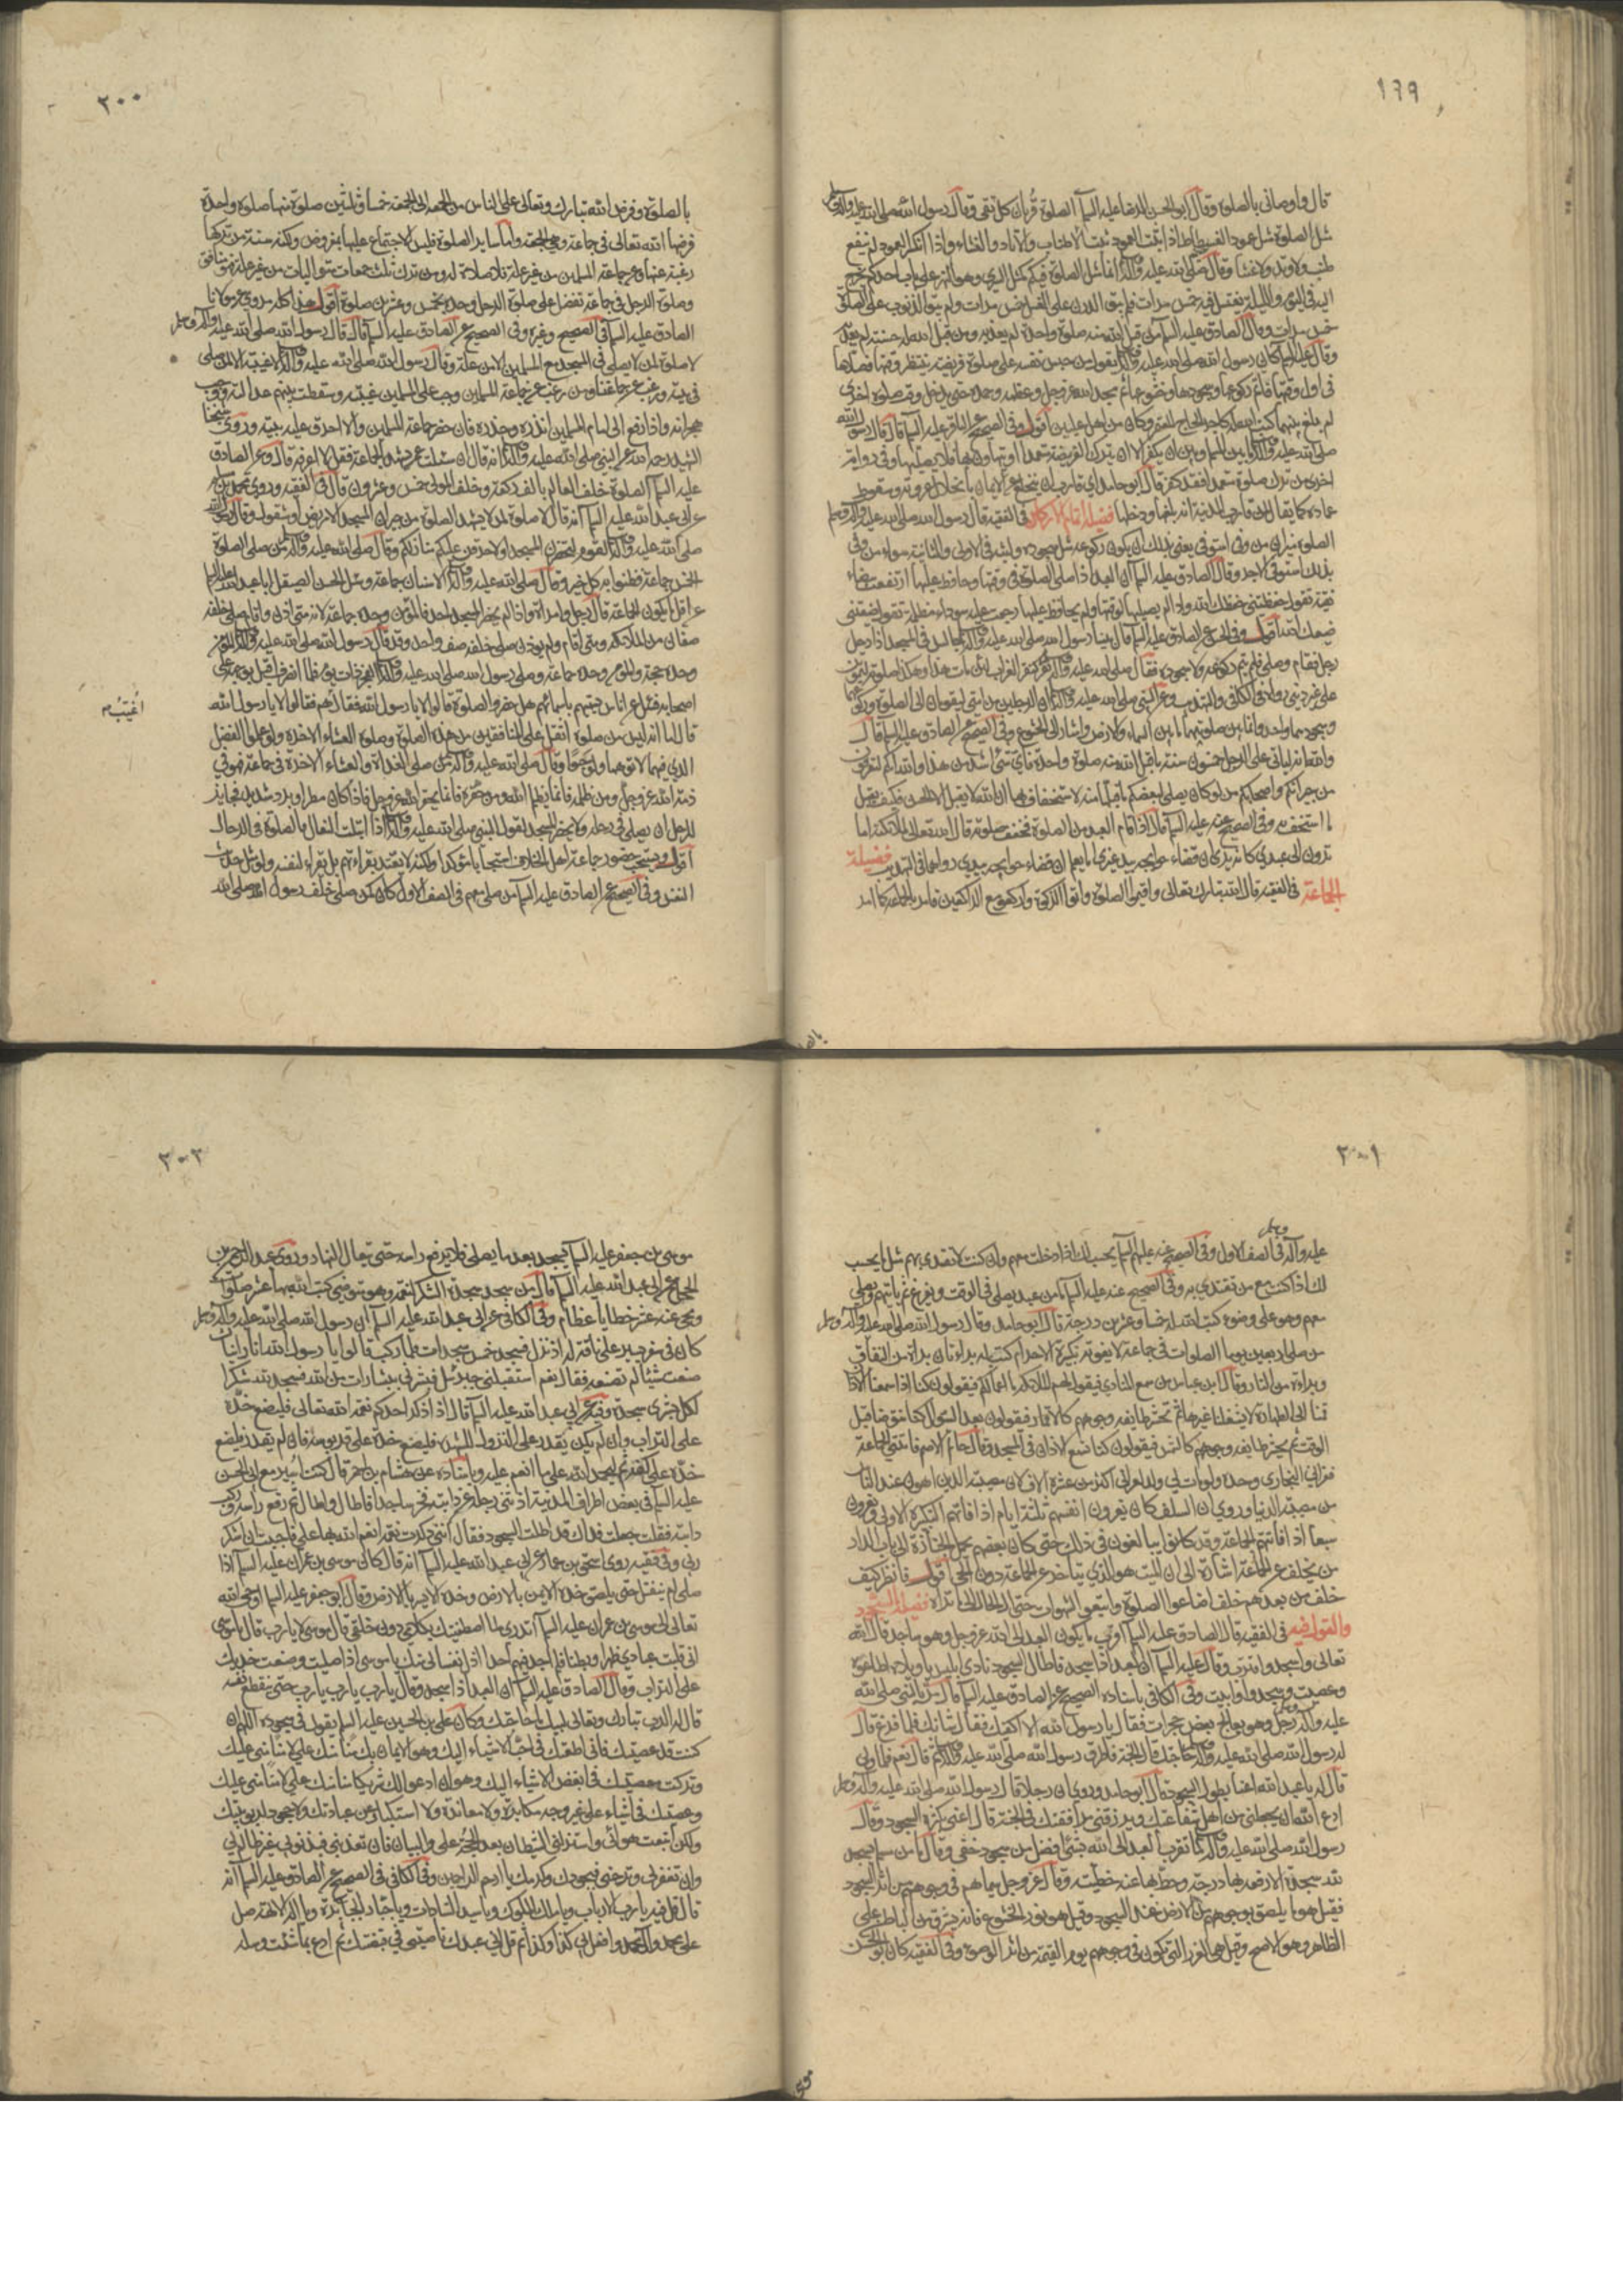 ١٩٩
قال واوصاني بالصلوة وقال ابو الحسن الرضا عليه السلم الصلوة قربان كل تقي وقال رسول الله صلى الله عليه واله وسلم
مثل الصلوة مثل عمود الفسطاط اذا ثبت العمود ثبت الاطناب والاوتاد والغشاء واذا انكسر العمود لم ينفع
طنب ولا وتد ولا غشاء وقال صلى الله عليه واله انما مثل الصلوة فيكم كمثل السري وهو النهر على باب احدكم يخرج
اليه في اليوم والليلة يغتسل فيه خمس مرات فلم يبق الدرن على الغسل خمس مرات ولم يبق الذنوب على الصلوة
خمس مرات وقال الصادق عليه السلم من قبل الله منه صلوة واحدة لم يعذبه ومن قبل الله له حسنة لم يعذبه
وقال عليه السلم كان رسول الله صلى الله عليه واله يقول من حبس نفسه على صلوة فريضة ينتظر وقتها فصلاها
في اول وقتها فاتم ركوعها وسجودها وخشوعها ثم مجد الله عز وجل وعظمه وحمده حتى يدخل وقت صلوة اخرى
لم يلغ بينهما كتب الله له كاجر الحاج المعتمر وكان من اهل عليين اقول وفي الصحيح عن الباقر عليه السلم قال قال رسول الله
صلى الله عليه واله ما بين المسلم وبين ان يكفر الا ان يترك الفريضة متعمدا او يتهاون بها فلا يصليها وفي رواية
اخرى من ترك صلوة متعمدا فقد كفر قال ابو حامد اي قارب ان ينخلع عن الايمان بانحلال عروته وسقوط
عماده كما يقال لمن قارب المدينة انه بلغها ودخلها فضيلة اتمام الاركان في الفقيه قال رسول الله صلى الله عليه واله وسلم
الصلوة ميزان من وفى استوفى يعني بذلك ان يكون ركوعه مثل سجوده ولبثه في الاولى والثانية سواء من وفى
بذلك استوفى الاجر وقال الصادق عليه السلم ان العبد اذا صلى الصلوة في وقتها وحافظ عليها ارتفعت بيضاء
نقية تقول حفظتني حفظك الله واذا لم يصلها لوقتها ولم يحافظ عليها رجعت عليه سوداء مظلمة تقول ضيعتني
ضيعك الله اقول وفي الصحيح عن الصادق عليه السلم قال بينا رسول الله صلى الله عليه واله جالس في المسجد اذ دخل
رجل فقام وصلى فلم يتم ركوعه ولا سجوده فقال صلى الله عليه واله نقر كنقر الغراب لئن مات هذا وهكذا صلوته ليموتن
على غير ديني رواه في الكافي والتهذيب وعن النبي صلى الله عليه واله ان الرجلين من امتي ليقومان الى الصلوة وركوعهما
وسجودهما واحد وانما بين صلوتيهما ما بين السماء والارض واشار الى الخشوع وفي الصحيح عن الصادق عليه السلم قال
والله انه لياتي على الرجل خمسون سنة ما قبل الله منه صلوة واحدة فاي شئ اشد من هذا والله انكم لتعرفون
من جيرانكم واصحابكم من لو كان يصلي لبعضكم ما قبلها منه لاستخفافه بها ان الله لا يقبل الا الحسن فكيف يقبل
ما استخف به وفي الصحيح عنه عليه السلم قال اذا قام العبد من الصلوة فخفف صلوته قال الله تعالى لملائكته اما
ترون الى عبدي كانه يرى ان قضاء حوائجه بيد غيري اما يعلم ان قضاء حوائجه بيدي رواهما في التهذيب فضيلة
الجماعة في الفقيه قال الله تبارك وتعالى واقيموا الصلوة واتوا الزكوة واركعوا مع الراكعين فامر بالجماعة كما امر
٢٠٠
بالصلوة وفرض الله تبارك وتعالى على الناس من الجمعة الى الجمعة خمسا وثلثين صلوة منها صلوة واحدة
فرضها الله تعالى في جماعة وهي الجمعة واما ساير الصلوة فليس الاجتماع عليها بمفروض ولكنه سنة من تركها
رغبة عنها وعن جماعة المسلمين من غير علة فلا صلاة له ومن ترك ثلث جمعات متواليات من غير علة فهو منافق
وصلوة الرجل في جماعة تفضل على صلوة الرجل وحده بخمس وعشرين صلوة اقول هذا كله مروي عن مولانا
الصادق عليه السلم في الصحيح وغيره وفي الصحيح عن الصادق عليه السلم قال قال رسول الله صلى الله عليه واله وسلم
لا صلوة لمن لا يصلي في المسجد مع المسلمين الا من علة وقال رسول الله صلى الله عليه واله لا غيبة الا لمن صلى
في بيته ورغب عن جماعتنا ومن رغب عن جماعة المسلمين وجب على المسلمين غيبته وسقطت بينهم عدالته ووجب
هجرانه واذا رفع الى امام المسلمين انذره وحذره فان حضر جماعة المسلمين والا احرق عليه بيته وروى شيخنا
الشهيد رحمه الله عن النبي صلى الله عليه واله انه قال ان سئلت عمن لم يشهد الجماعة فقل لا اعرفه قال وعن الصادق
عليه السلم الصلوة خلف العالم بالف ركعة وخلف المولى خمس وعشرون قال في الفقيه وروى محمد بن مسلم
عن ابي عبد الله عليه السلم انه قال لا صلوة لمن لا يشهد الصلوة من جيران المسجد الا مريض او مشغول وقال رسول الله
صلى الله عليه واله لقوم لتحضرن المسجد او لاحرقن عليكم منازلكم وقال صلى الله عليه واله من صلى الصلوة
الخمس جماعة فظنوا به كل خير وقال صلى الله عليه واله الاثنان جماعة وسئل الحسن الصيقل ابا عبد الله عليه السلم
عن اقل ما يكون الجماعة قال رجل وامراة واذا لم يحضر المسجد احد فالمؤمن وحده جماعة لانه متى اذن واقام صلى خلفه
صفان من الملائكة ومتى اقام ولم يؤذن صلى خلفه صف واحد وقد قال رسول الله صلى الله عليه واله المؤمن
وحده حجة والمؤمن وحده جماعة وصلى رسول الله صلى الله عليه واله الفجر ذات يوم فلما انصرف اقبل بوجهه على
اصحابه فسئل عن اناس يسميهم باسمائهم هل حضروا الصلوة قالوا لا يا رسول الله فقال اغيب هم فقالوا لا يا رسول الله
اغيب هم
قال اما انه ليس من صلوة اثقل على المنافقين من هذه الصلوة وصلوة العشاء الاخرة ولو علموا الفضل
الذي فيهما لاتوهما ولو حبوا وقال صلى الله عليه واله من صلى الغداة والعشاء الاخرة في جماعة فهو في
ذمة الله عز وجل ومن ظلمه فانما يظلم الله ومن حقره فانما يحقر الله عز وجل فاذا كان مطر او برد شديد فجايز
للرجل ان يصلي في رحله ولا يحضر المسجد لقول النبي صلى الله عليه واله اذا ابتلت النعال فالصلوة في الرحال
اقول ويستحب حضور جماعة اهل الخلاف استحبابا مؤكدا ولكنه لا يعتد بقراءتهم بل يقراء لنفسه ولو مثل حديث
النفس وفي الصحيح عن الصادق عليه السلم من صلى معهم في الصف الاول كان كمن صلى خلف رسول الله صلى الله
٢٠١
عليه واله في الصف الاول وفي الصحيح عنه عليه السلم يحسب لك اذا دخلت معهم وان كنت لا تقتدي بهم مثل ما يحسب
وسلم
لك اذا كنت مع من تقتدي به وفي الصحيح عنه عليه السلم ما من عبد يصلي في الوقت ويفرغ ثم ياتيهم ويصلي
معهم وهو على وضوء كتب الله له خمسا وعشرين درجة قال ابو حامد وقال رسول الله صلى الله عليه واله وسلم
من صلى اربعين يوما الصلوات في جماعة لا يفوته تكبيرة الاحرام كتب له براءتان براءة من النفاق
وبراءة من النار وقال ابن عباس من سمع المنادي
قمنا الى الطهارة لا يشغلنا غيرها ثم تحشر طايفة وجوههم كالاقمار فيقولون بعد السؤال كنا نتوضا قبل
الوقت ثم يحشر طايفة وجوههم كالشمس فيقولون كنا نسمع الاذان في المسجد وقال حاتم الاصم فاتتني الجماعة
فعزاني البخاري وحده ولو مات لي ولد لعزاني اكثر من عشرة الاف لان مصيبة الدين اهون عند الناس
من مصيبة الدنيا وروي ان السلف كان يعزون انفسهم ثلثة ايام اذا فاتتهم التكبيرة الاولى ويعزون
سبعا اذا فاتتهم الجماعة وقد كانوا يبالغون في ذلك حتى كان بعضهم يحمل الجنازة الى باب الدار
من تخلف عن الجماعة اشارة الى ان الميت هو الذي يتاخر عن الجماعة دون الحي اقول فانظر كيف
خلف من بعدهم خلف اضاعوا الصلوة واتبعوا الشهوات حتى ال الحال الى ما تراه فضيلة السجود
والقول فيه في الفقيه قال الصادق عليه السلم اقرب ما يكون العبد الى الله عز وجل وهو ساجد قال الله
تعالى واسجد واقترب وقال عليه السلم ان العبد اذا سجد فاطال السجود نادى ابليس يا ويلاه اطاعوا
وعصيت وسجدوا وابيت وفي الكافي باسناده الصحيح عن الصادق عليه السلم قال مر بالنبي صلى الله
عليه واله رجل وهو يعالج بعض حجراته فقال يا رسول الله الا اكفيك فقال شانك فلما فرغ قال
له رسول الله صلى الله عليه واله حاجتك قال الجنة فاطرق رسول الله صلى الله عليه واله ثم قال نعم فلما ولى
قال له يا عبد الله اعنا بطول السجود قال ابو حامد وروي ان رجلا قال لرسول الله صلى الله عليه واله وسلم
ادع الله ان يجعلني من اهل شفاعتك ويرزقني مرافقتك في الجنة قال اعني بكثرة السجود وقال
رسول الله صلى الله عليه واله ما تقرب العبد الى الله بشئ افضل من سجود خفي وقال ما من مسلم يسجد
لله سجدة الا رفعه بها درجة وحط بها عنه خطيئة وقال عز وجل سيماهم في وجوههم من اثر السجود
فقيل هو ما يلصق بوجوههم من الارض عند السجود وقيل هو نور الخشوع فانه يشرق من الباطن على
الظاهر وهو الاصح وقيل هي الغرر التي تكون في وجوههم يوم القيمة من اثر الوضوء وفي الفقيه كان ابو الحسن
٢٠٢
موسى بن جعفر عليه السلم يسجد بعد ما يصلي فلا يرفع راسه حتى يتعال النهار وروى عبد الرحمن بن
الحجاج عن ابي عبد الله عليه السلم قال من سجد سجدة الشكر لنعمة وهو متوضئ كتب الله بها عشر صلوات
ومحى عنه عشر خطايا عظام وفي الكافي عن ابي عبد الله عليه السلم ان رسول الله صلى الله عليه واله وسلم
كان في سفر يسير على ناقة له اذ نزل فسجد خمس سجدات فلما ركب قالوا يا رسول الله انا رايناك
صنعت شيئا لم تصنعه فقال نعم استقبلني جبرئيل فبشرني ببشارات من الله فسجدت لله شكرا
لكل بشرى سجدة وفيه عن ابي عبد الله عليه السلم قال اذا ذكر احدكم نعمة الله تعالى فليضع خده
على التراب وان لم يكن يقدر على النزول للشهرة فليضع خده على قربوسه فان لم يقدر فليضع
خده على كفه ثم ليحمد الله على ما انعم عليه وباسناده عن هشام بن احمر قال كنت اسير مع ابي الحسن
عليه السلم في بعض اطراف المدينة اذ ثنى رجله عن دابته فخر ساجدا فاطال واطال ثم رفع راسه وركب
دابته فقلت جعلت فداك قد اطلت السجود فقال انني ذكرت نعمة انعم الله بها علي فاحببت ان اشكر
ربي وفي فقيه روى اسحق بن عمار عن ابي عبد الله عليه السلم انه قال كان موسى بن عمران عليه السلم اذا
صلى لم ينفتل حتى يلصق خده الايمن بالارض وخده الايسر بالارض وقال ابو جعفر عليه السلم اوحى الله
تعالى الى موسى بن عمران عليه السلم اتدري لما اصطفيتك بكلامي دون خلقي قال موسى لا يا رب قال يا موسى
اني قلبت عبادي ظهرا وبطنا فلم اجد فيهم احدا اذل نفسا لي منك يا موسى اذا صليت وضعت خديك
على التراب وقال الصادق عليه السلم ان العبد اذا سجد وقال يا رب يا رب يا رب حتى ينقطع نفسه
قال له الرب تبارك وتعالى لبيك ما حاجتك وكان علي بن الحسين عليه السلم يقول في سجوده اللهم ان
كنت قد عصيتك فاني اطعتك في احب الاشياء اليك وهو الايمان بك منا منك علي لا منا مني عليك
وتركت معصيتك في ابغض الاشياء اليك وهو ان ادعو لك شريكا منا منك علي لا منا مني عليك
وعصيتك في اشياء على غير وجه مكابرة ولا معاندة ولا استكبار عن عبادتك ولا جحود لربوبيتك
ولكن اتبعت هواي واستزلني الشيطان بعد الحجة علي والبيان فان تعذبني فبذنوبي غير ظالم لي
وان تغفر لي وترحمني فبجودك وكرمك يا ارحم الراحمين وفي الكافي في الصحيح عن الصادق عليه السلم انه
قال قل فيه يا رب الارباب ويا ملك الملوك ويا سيد السادات ويا جبار الجبابرة ويا اله الالهة صل
على محمد وال محمد وافعل بي كذا وكذا ثم قل اني عبدك ناصيتي في قبضتك ثم ادع بما شئت وسله